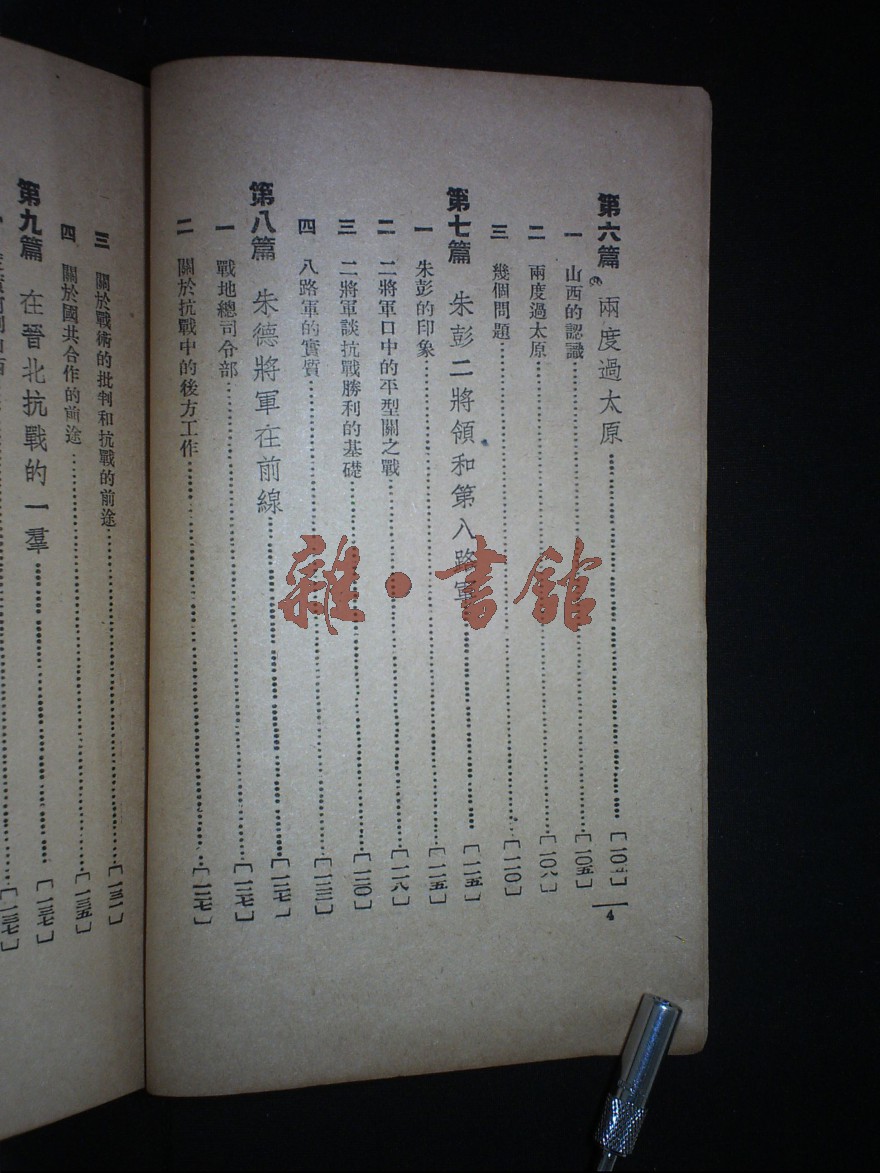 第六篇 兩度過太原
一 山西的認識……[一〇五]
二 兩度過太原……[一〇八]
三 幾個問題……[一一〇]
第七篇 朱彭二將領和第八路軍……[一一五]
一 朱彭的印象……[一一五]
二 二將軍口中的平型關之戰……[一一八]
三 二將軍談抗戰勝利的基礎……[一二〇]
四 八路軍的實質……[一二三]
第八篇 朱德將軍在前線……[一二七]
一 戰地總司令部……[一二七]
二 關於抗戰中的後方工作……[一二七]
4
三 關於戰術的批判和抗戰的前途……[一三一]
四 關於國共合作的前途……[一三五]
第九篇 在晉北抗戰的一羣……[一三七]
[一三七]
雜·書館